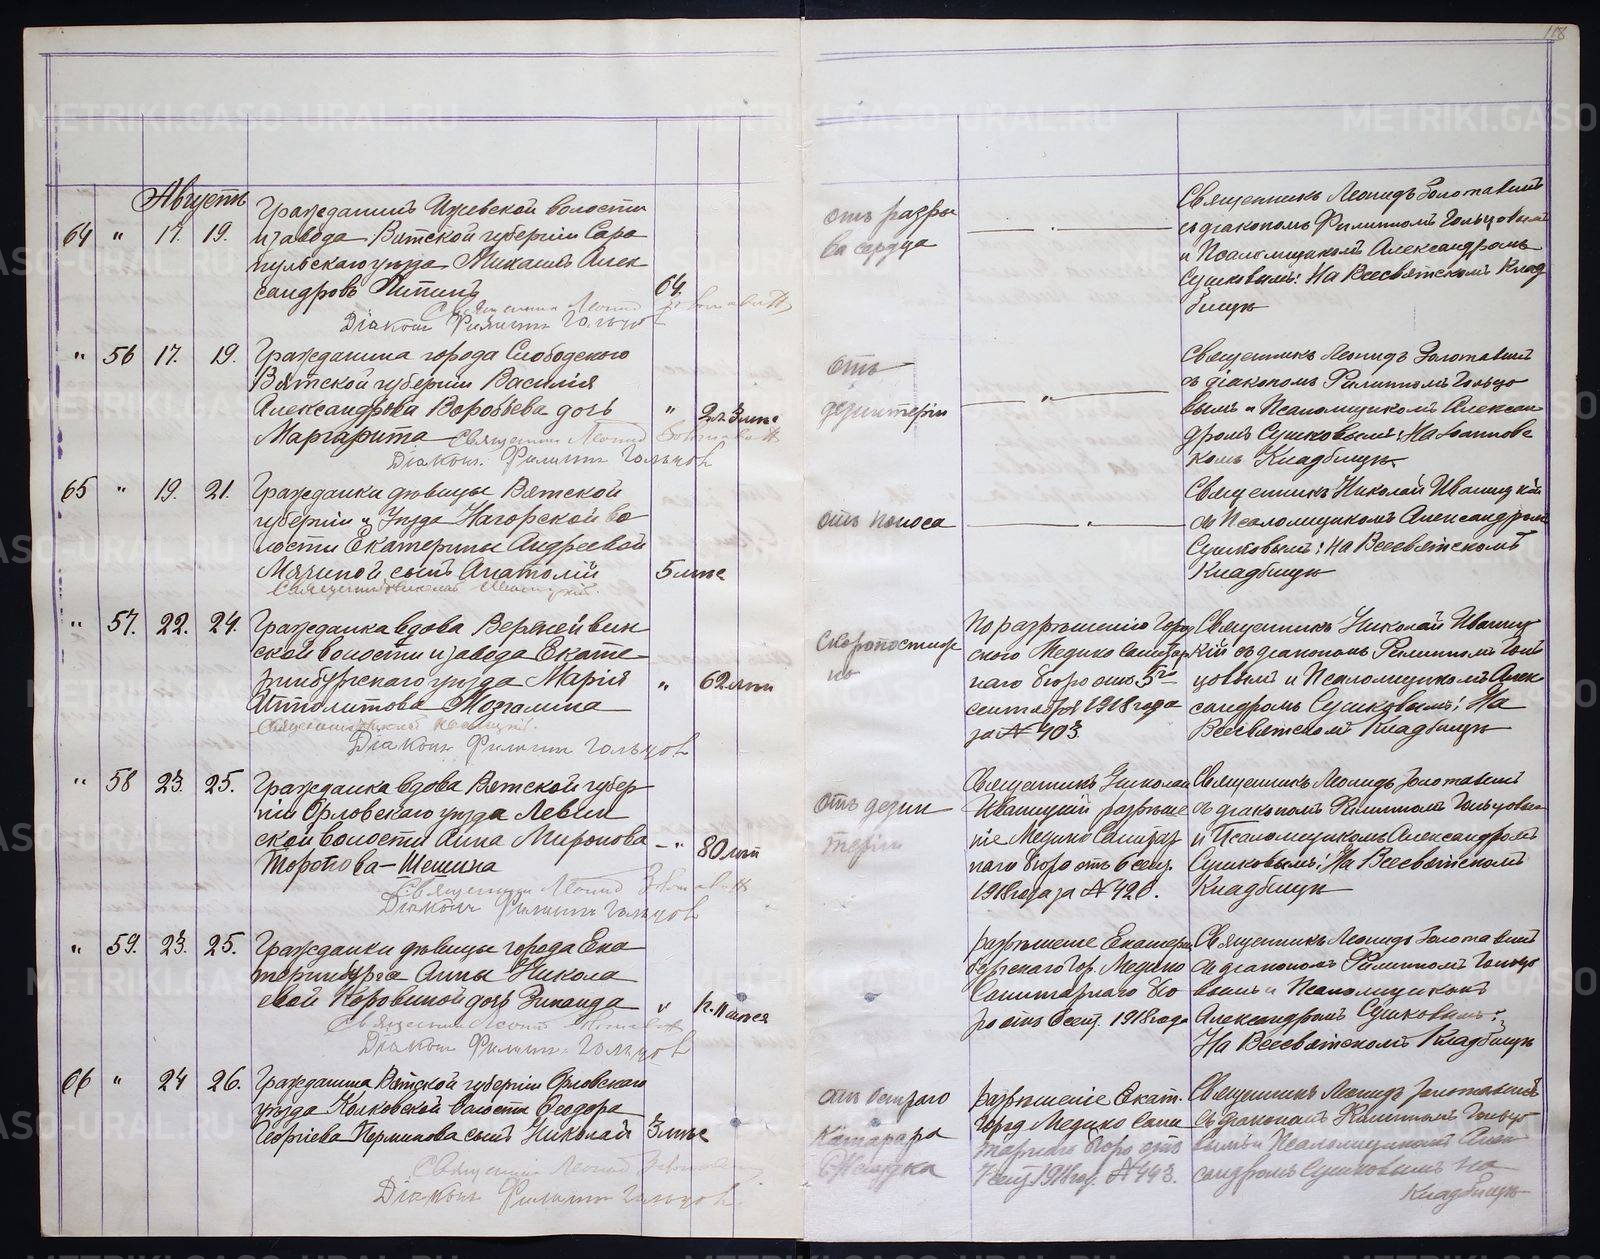 118
Августъ
64 " 17. 19. Гражданинъ Ижевской волости
и завода Вятской губерніи Сара
пульскаго уѣзда Михаилъ Алек
сандровъ 64.
Священникъ Леонид Золотавин
Діаконъ Филиппъ Гольцов
отъ разры
ва сердца
Священникъ Леонидъ Золотавинъ
съ діакономъ Филиппомъ Гольцовымъ
и Псаломщикомъ Александромъ
Сушковымъ: На Всесвятскомъ Клад
бищѣ
" 56 17. 19. Гражданина города Слободского
Вятской губерніи Василія
Александрова Воробьева дочь " 2 л. 3 мѣс
Маргарита Священник Леонид Золотавин
Діаконъ Филиппъ Гольцов
отъ
дезинтеріи
Священникъ Леонидъ Золотавинъ
съ діакономъ Филиппомъ Гольцо
вымъ и Псаломщикомъ Алексан
дромъ Сушковымъ: На Іоанновс
комъ Кладбищѣ
65 " 19. 21. Гражданки дѣвицы Вятской
губерніи и уѣзда Нагорской во
лости Екатерины Андреевой
сынъ Анатолій 5 мѣс
Священник Николай Иваницкій
отъ поноса
Священникъ Николай Иваницкій
съ Псаломщикомъ Александромъ
Сушковымъ: На Всесвятскомъ
Кладбищѣ
" 57. 22. 24. Гражданка вдова Верхнейвин
ской волости и завода Екате
ринбургскаго уѣзда Марія " 62 лѣт
Ипполитова
Священник Николай Иваницкій
Діаконъ Филиппъ Гольцов
Скоропостиж
но
По разрѣшенію Город
ского Медико Санитар
наго бюро отъ 5го
сентября 1918 года
за № 403
Священникъ Николай Иваниц
кій съ діакономъ Филиппомъ Голь
цовымъ и Псаломщикомъ Алек
сандромъ Сушковымъ: На
Всесвятскомъ Кладбищѣ
" 58 23. 25. Гражданка вдова Вятской губер
ніи Орловскаго уѣзда Левин
ской волости Анна Миронова " 80 лѣт
Торопова-Шешина
Священник Леонид Золотавин
Діаконъ Филиппъ Гольцов
отъ дезин
теріи
Священникъ Николай
Иваницкій разрѣше
ніе Медико Санитар
наго бюро отъ 6 сент.
1918 года за № 420.
Священникъ Леонидъ Золотавинъ
съ діакономъ Филиппомъ Гольцовым
и Псаломщикомъ Александромъ
Сушковымъ: На Всесвятскомъ
Кладбищѣ
" 59. 23. 25. Гражданки дѣвицы города Ека
теринбурга Анны Никола
евой Коровиной дочь Зинаида "
Священник Леонид Золотавин
Діаконъ Филиппъ Гольцов
разрѣшеніе Екатерин
бургскаго Гор. Медико
Санитарнаго Бю
ро отъ 6 сент. 1918 года
Священникъ Леонидъ Золотавинъ
съ діакономъ Филиппомъ Гольцо
вымъ и Псаломщикомъ
Александромъ Сушковымъ:
На Всесвятскомъ Кладбищѣ
66 " 24 26. Гражданина Вятской губерніи Орловскаго
уѣзда волости Ѳеодора
Георгіева Перминова сынъ Николай 3 мѣс
Священник Леонид Золотавин
Діаконъ Филиппъ Гольцов.
отъ остраго
Катарра
Желудка
разрѣшеніе Екат.
Город Медико Сани
тарнаго бюро отъ
7 сент 1918 год. № 443.
Священникъ Леонидъ Золотавинъ
съ діакономъ Филиппомъ Гольцо
вымъ и Псаломщикомъ Алек
сандромъ Сушковымъ На
Кладбищѣ